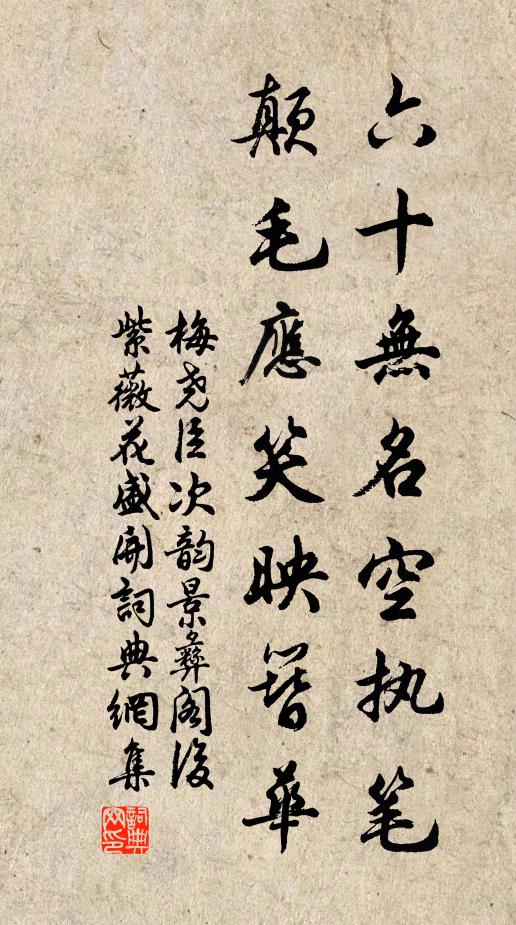 六十無名空执笔
顛毛應笑映簪華
梅堯臣次韵景彝閣後
紫薇花盛開詞典網集
詞典网印